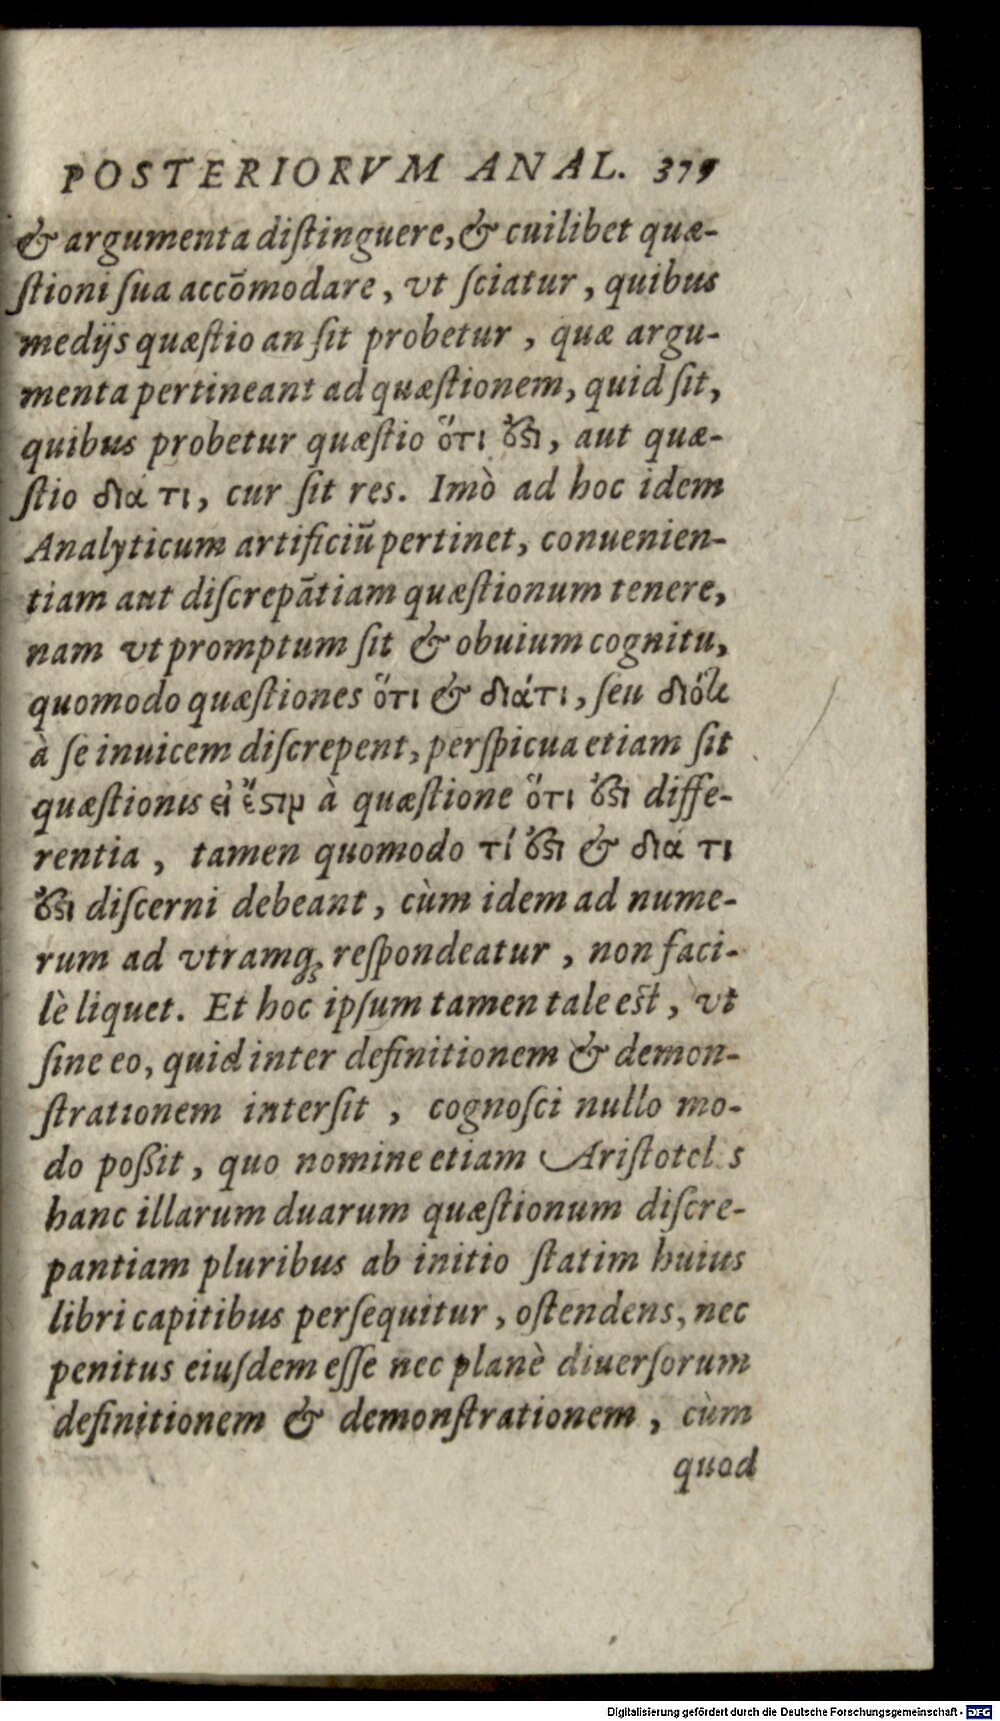 POSTERIORVM ANAL. 375
& argumenta diſtinguere, & cuilibet quæ-
ſtioni ſua accõmodare, vt ſciatur, quibus
medijs quæſtio an ſit probetur, quæ argu-
menta pertineant ad quæſtionem, quid ſit,
quibus probetur quæſtio ὅτι ὅϛι, aut quæ-
ſtio διά τι, cur ſit res. Imò ad hoc idem
Analyticum artificiũ pertinet, conuenien-
tiam aut diſcrepãtiam quæſtionum tenere,
nam vt promptum ſit & obuium cognitu,
quomodo quæſtiones ὅτι & διάτι, ſeu διότι
à ſe inuicem diſcrepent, perſpicua etiam ſit
quæſtionis εἰ ἔϛιν à quæſtione ὅτι ὅϛι diffe-
rentia, tamen quomodo τί ὅϛι & διά τι
ὅϛι diſcerni debeant, cùm idem ad nume-
rum ad vtramq́ꝫ reſpondeatur, non faci-
lè liquet. Et hoc ipſum tamen tale eſt, vt
ſine eo, quid inter definitionem & demon-
ſtrationem interſit, cognoſci nullo mo-
do poßit, quo nomine etiam Ariſtotel s
hanc illarum duarum quæſtionum diſcre-
pantiam pluribus ab initio ſtatim huius
libri capitibus perſequitur, oſtendens, nec
penitus eiuſdem eſſe nec planè diuerſorum
definitionem & demonſtrationem, cùm
quod
Digitalisierung gefördert durch die Deutsche Forschungsgemeinschaft - DFG